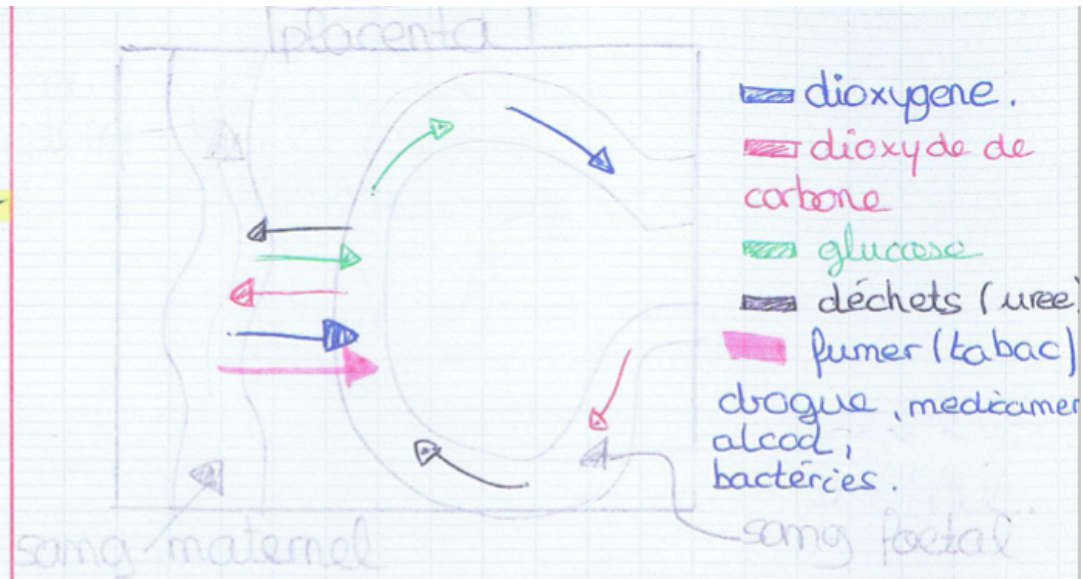 placenta
dioxygene.
dioxyde de
carbone
glucose
déchets (uree)
fumer (tabac)
drogue, medicamen
alcool,
bactéries.
sang maternel
sang foetal